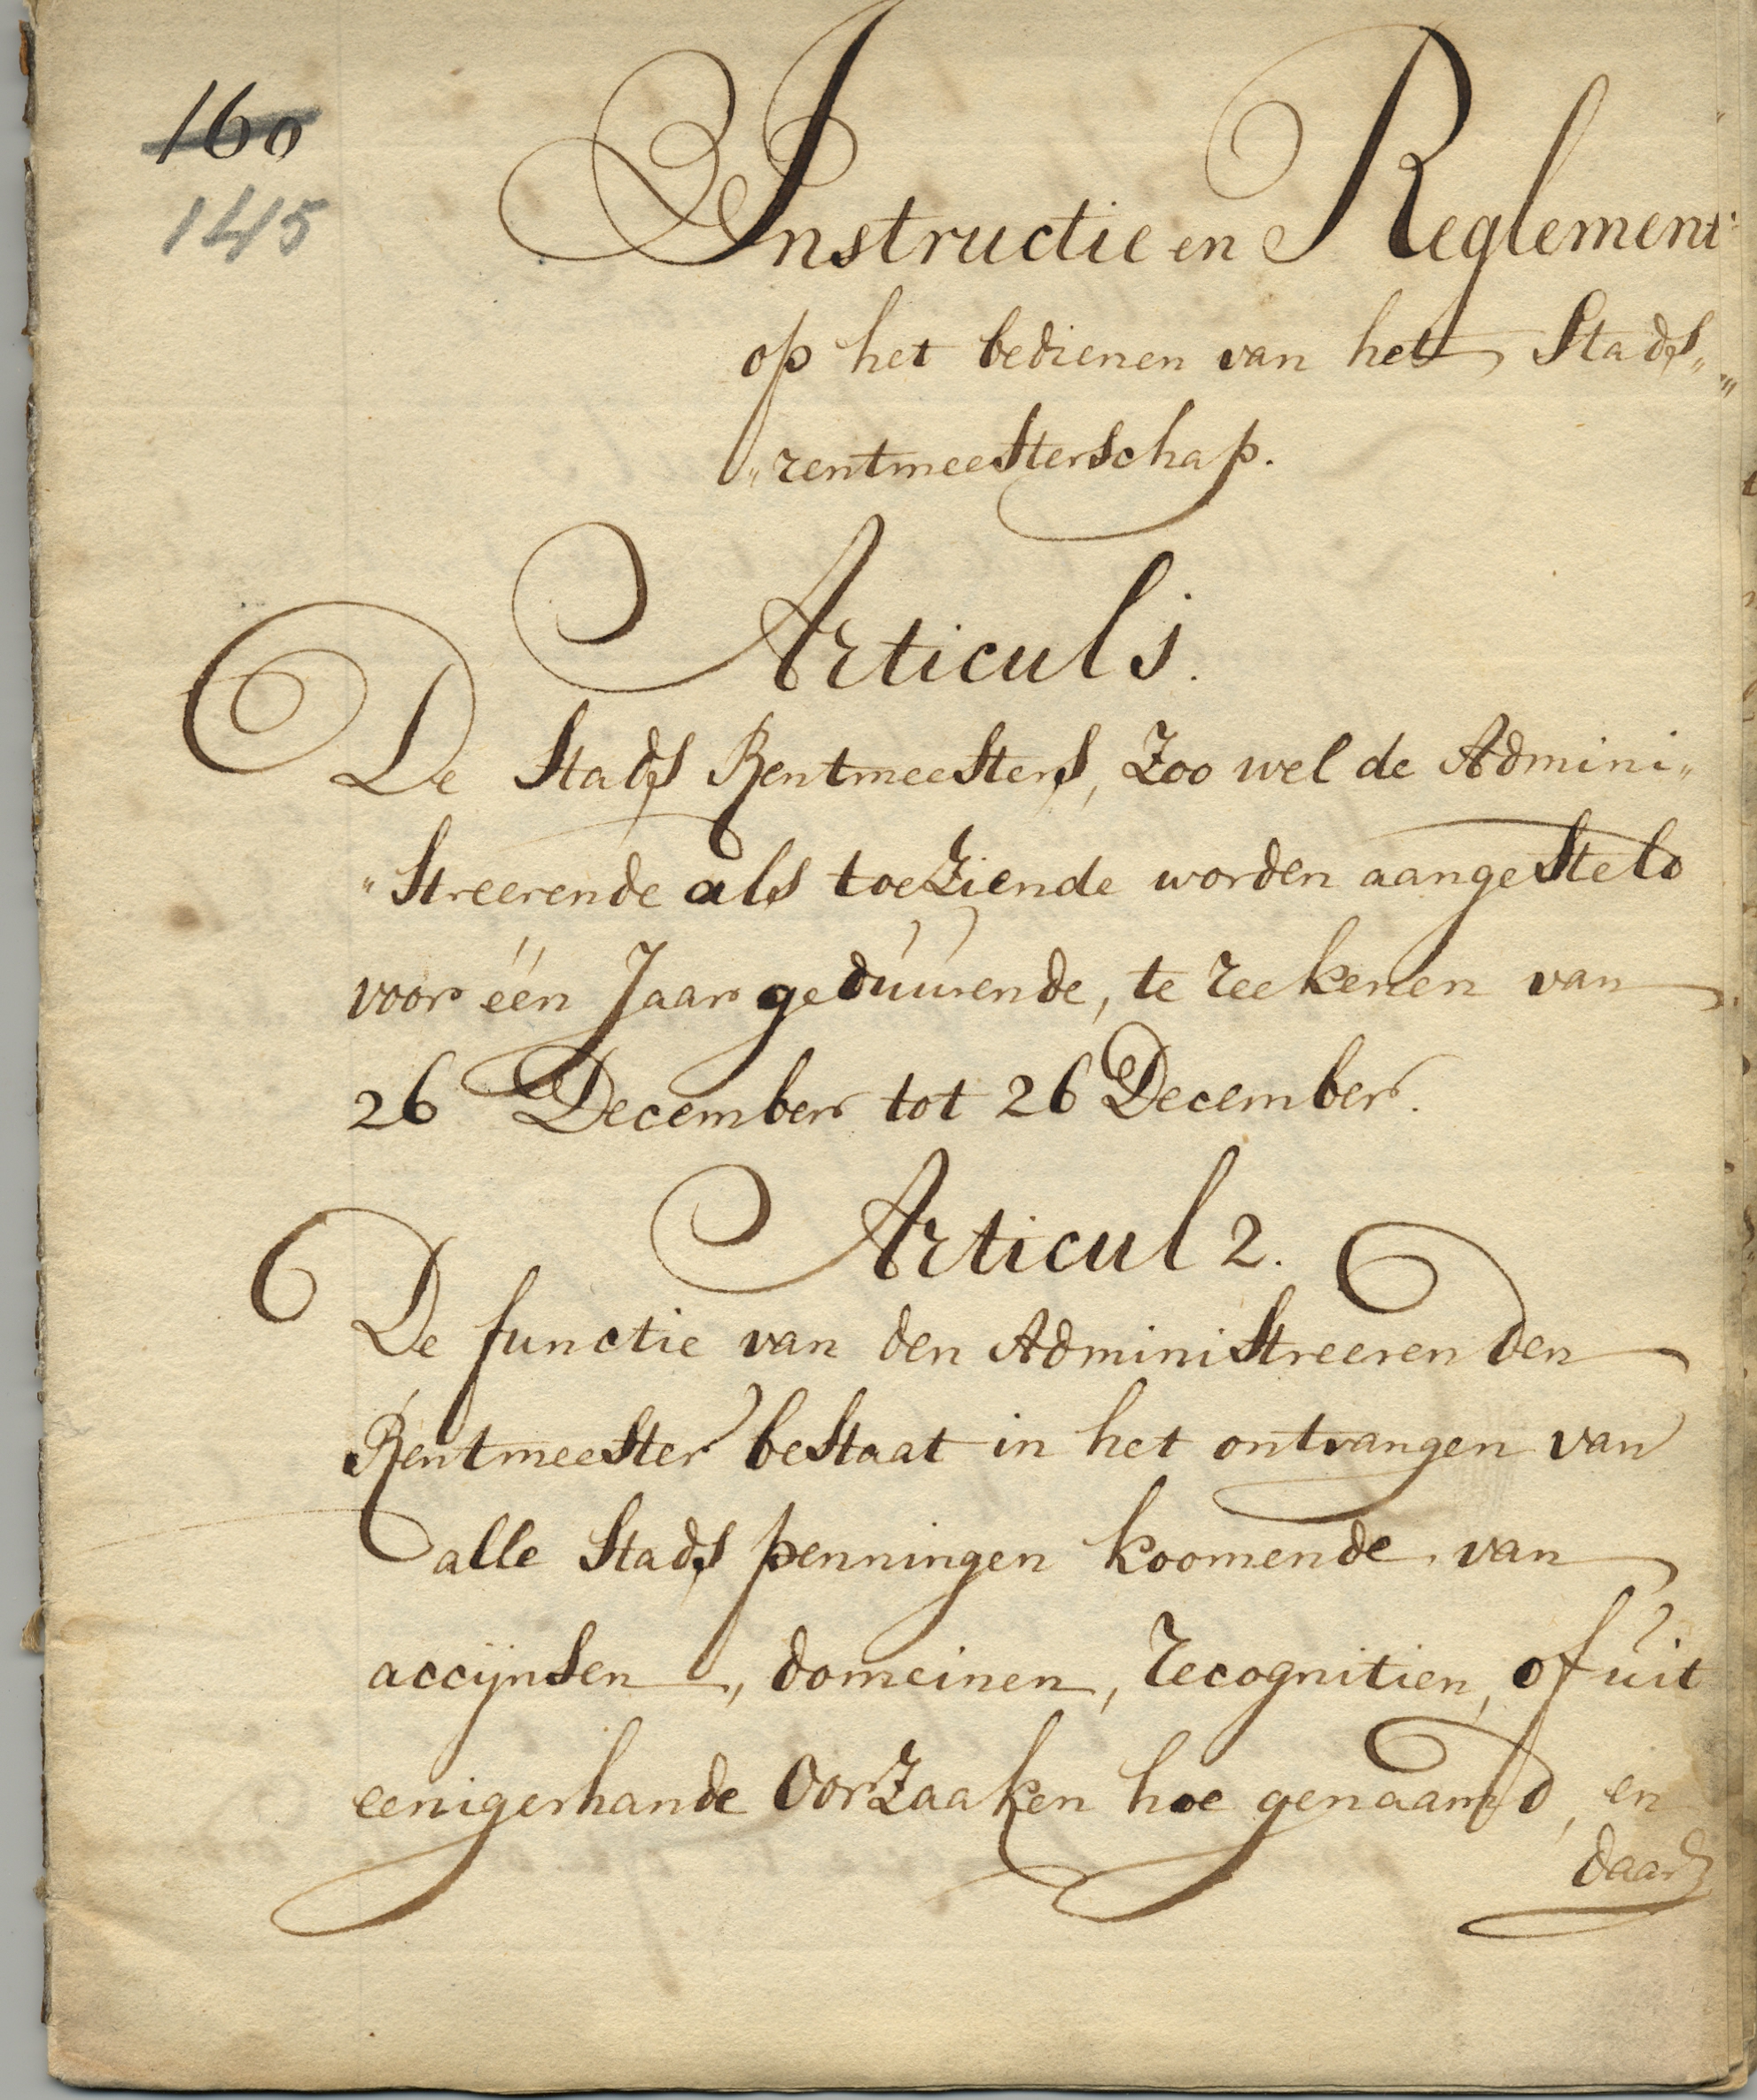 160
145
Instructie en Reglement
op het bedienen van het Stads„
„rentmeesterschap.
Articul j.
De Stads Rentmeesters, Zoo wel de Admini„
„Streerende als toeZiende worden aangesteld
voor één Jaar geduurende, te reekenen van
26 December tot 26 December.
Articul 2.
De functie van den Administreerenden
Rentmeester bestaat in het ontvangen van
alle Stads penningen koomende van
accijnsen, domeinen, recognitien, of uit
eenigerhande OorZaaken hoe genaamd, en
daar